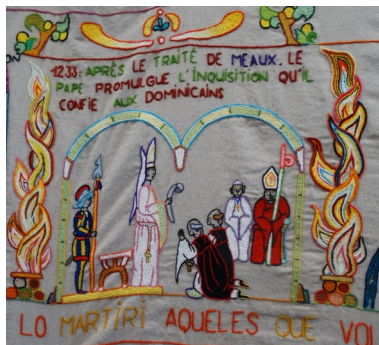 1233: APRÈS LE TRAITÉ DE MEAUX. LE
PAPE PROMULGUE L'INQUISITION QU'IL
CONFIE AUX DOMINICAINS
LO MARTIRI AQUELES QUE